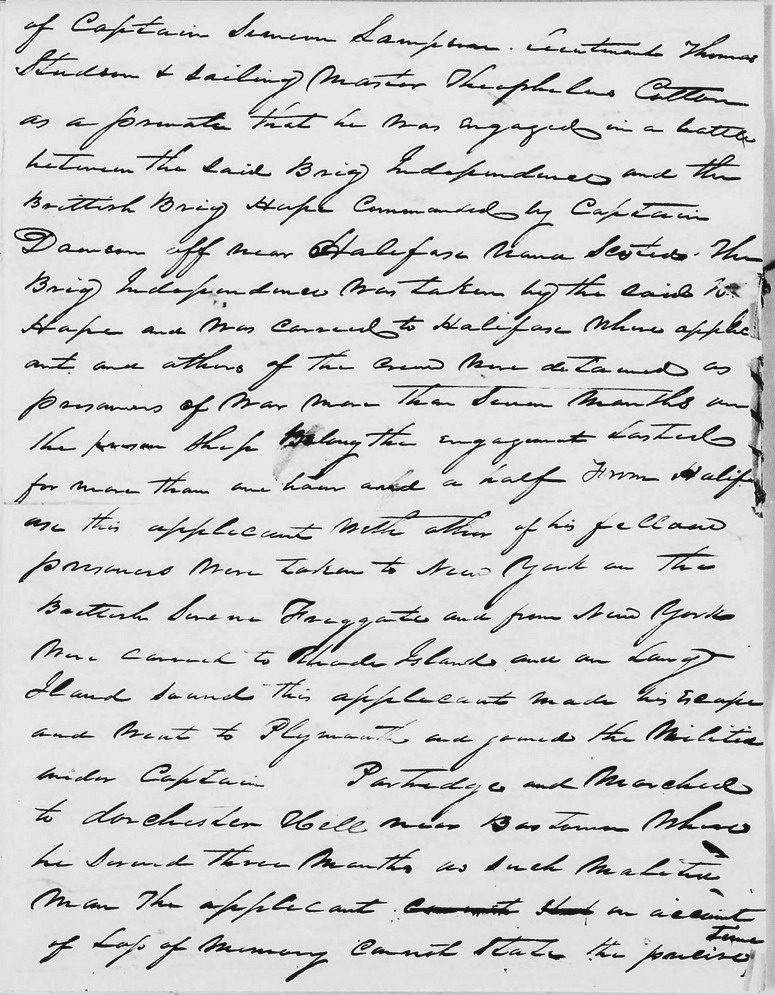 of Captain Simeon Sampson. Lieutenant Thomas
Studson & Sailing Master Theophelus Cotton
as a private that he was engaged in a battle
between the said Brig Independence and the
Brittish Brig Hope Commanded by Captain
Dawson off near Halifax Nova Scotia. The
Brig Independence was taken by the said
Hope and was carried to Halifax where applic
ant and others of the crew were detained as
prisoners of war more than Seven Months on
the prison Ship the engagement lasted
for more than one hour and a half From Halif
ax this applicant with other of his fellow
prisoners were taken to New York on the
Brittish Frggate and from New York
were carried to Rhode Island and on Long
Iland sound this applicant made his Escape
and went to Plymouth and joined the Militia
under Captain Partredge and Marched
to dorchester Hill near Bostown where
he served three Months as such Malitia
Man The applicant on account
of Loss of Memory cannot state the precise time